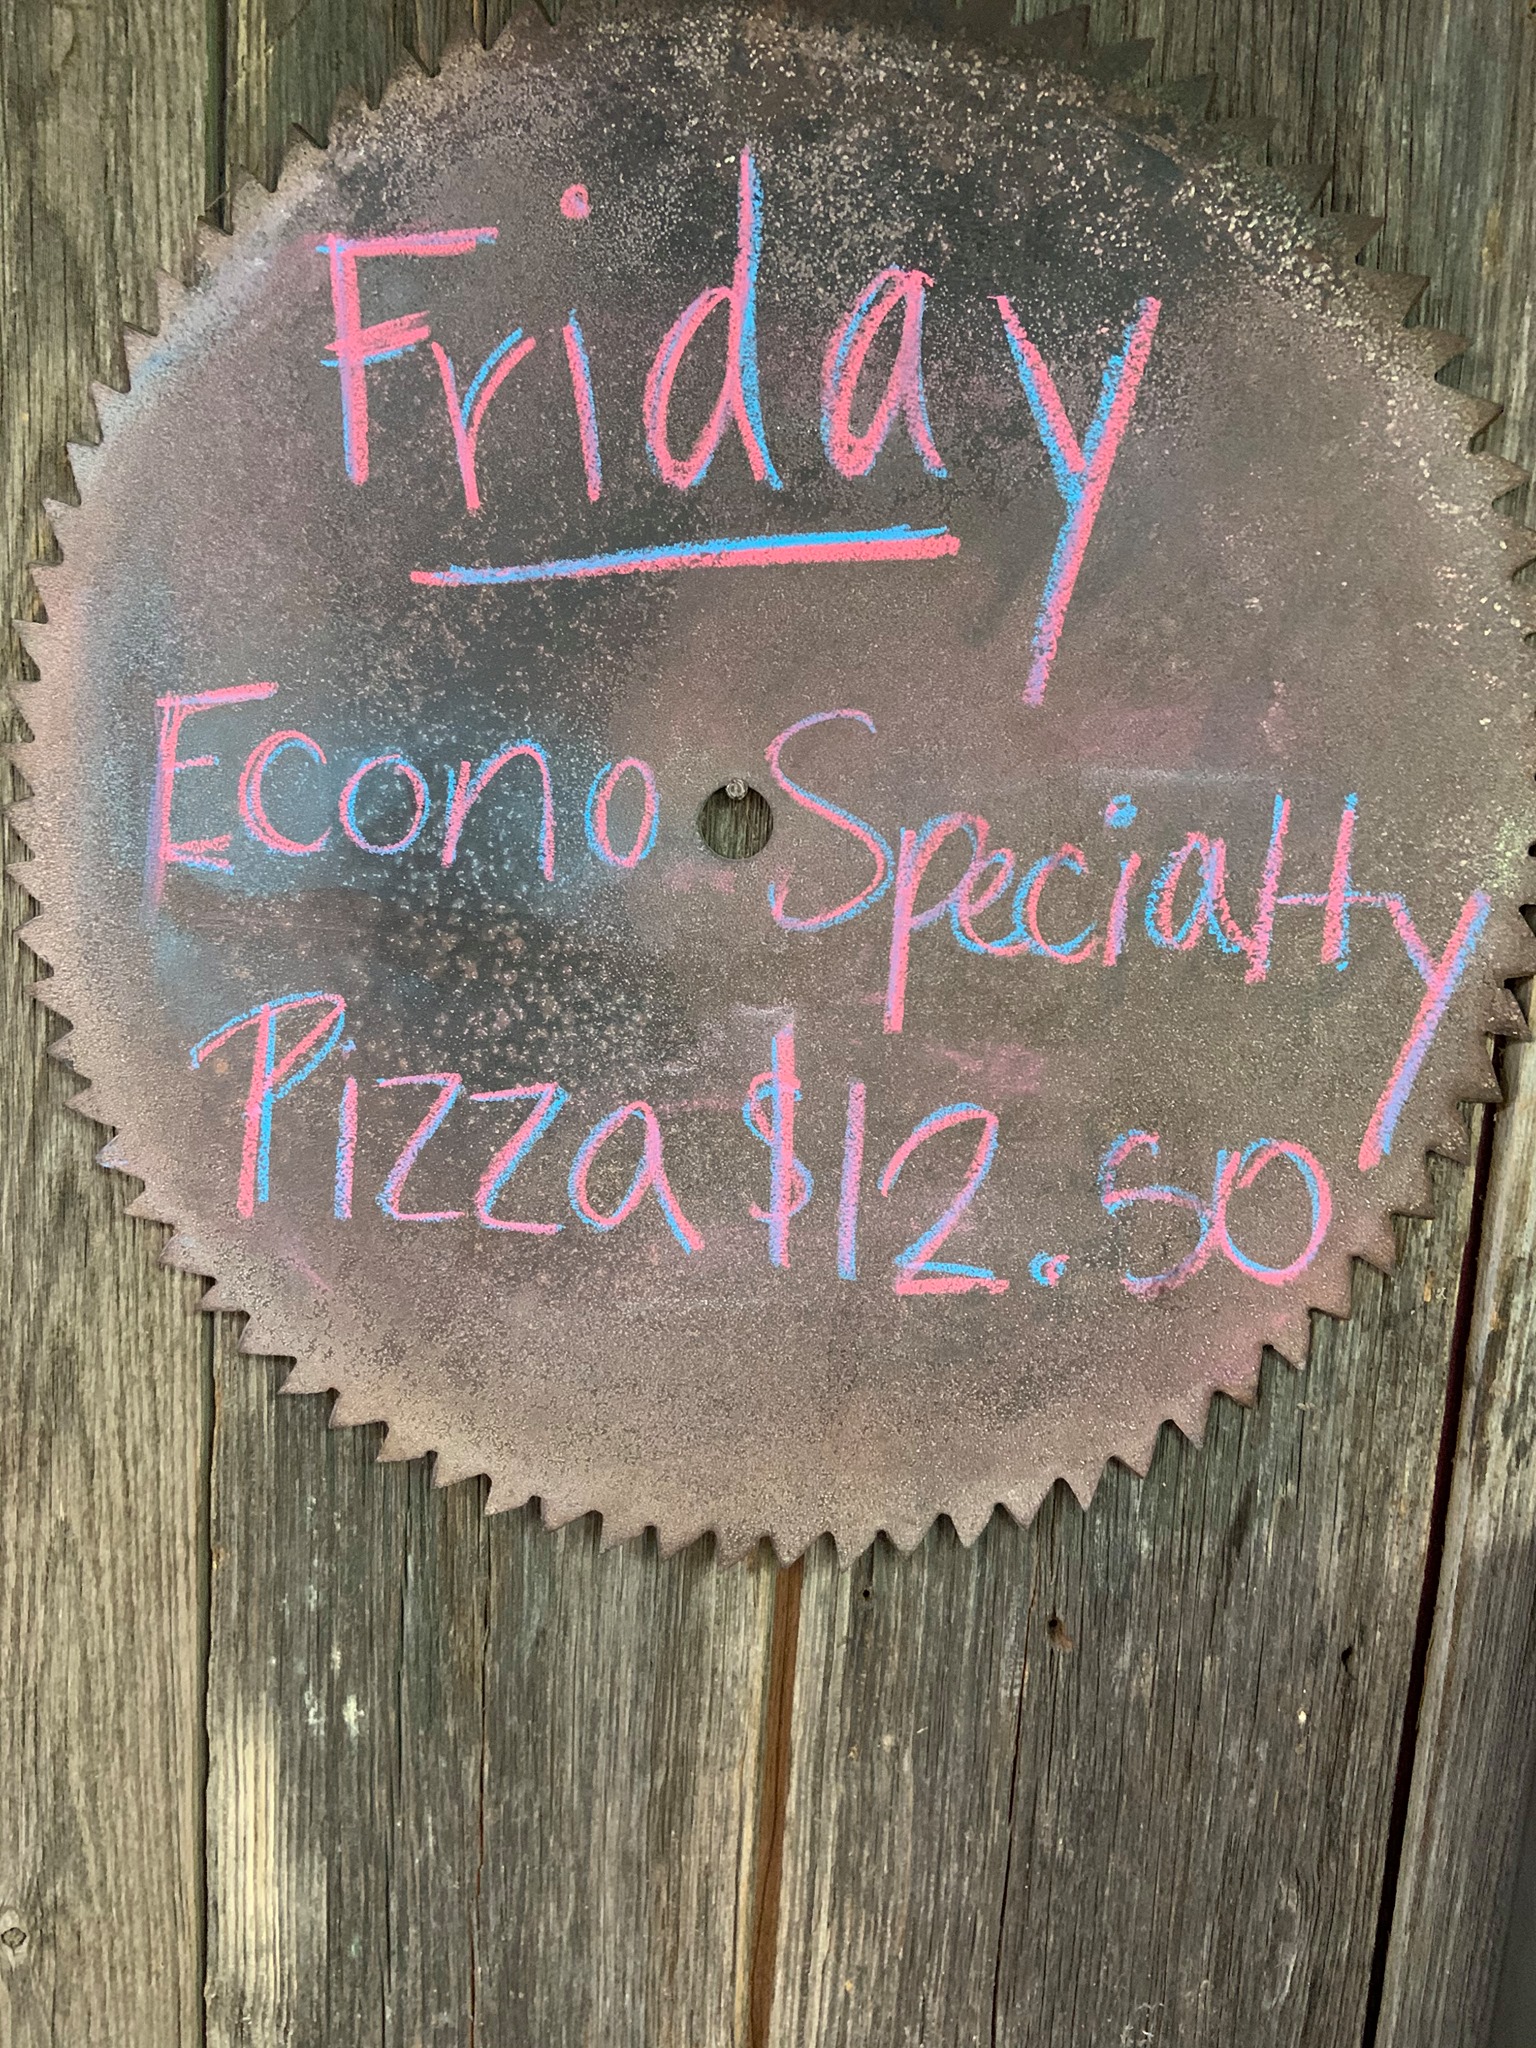 Friday
Econo Specialty
Pizza $12.50